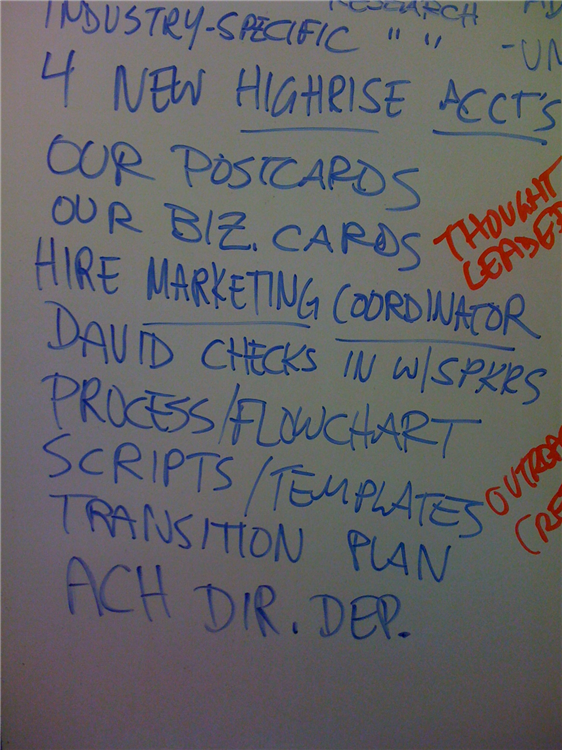 RESEARCH
INDUSTRY-SPECIFIC " " -UN
4 NEW HIGHRISE ACCT'S
OUR POSTCARDS
OUR BIZ. CARDS
THOUGHT
LEADE
HIRE MARKETING COORDINATOR
DAVID CHECKS IN W/SPKRS
PROCESS/FLOWCHART
SCRIPTS/TEMPLATES
OUTREA
(RE
TRANSITION PLAN
ACH DIR. DEP.